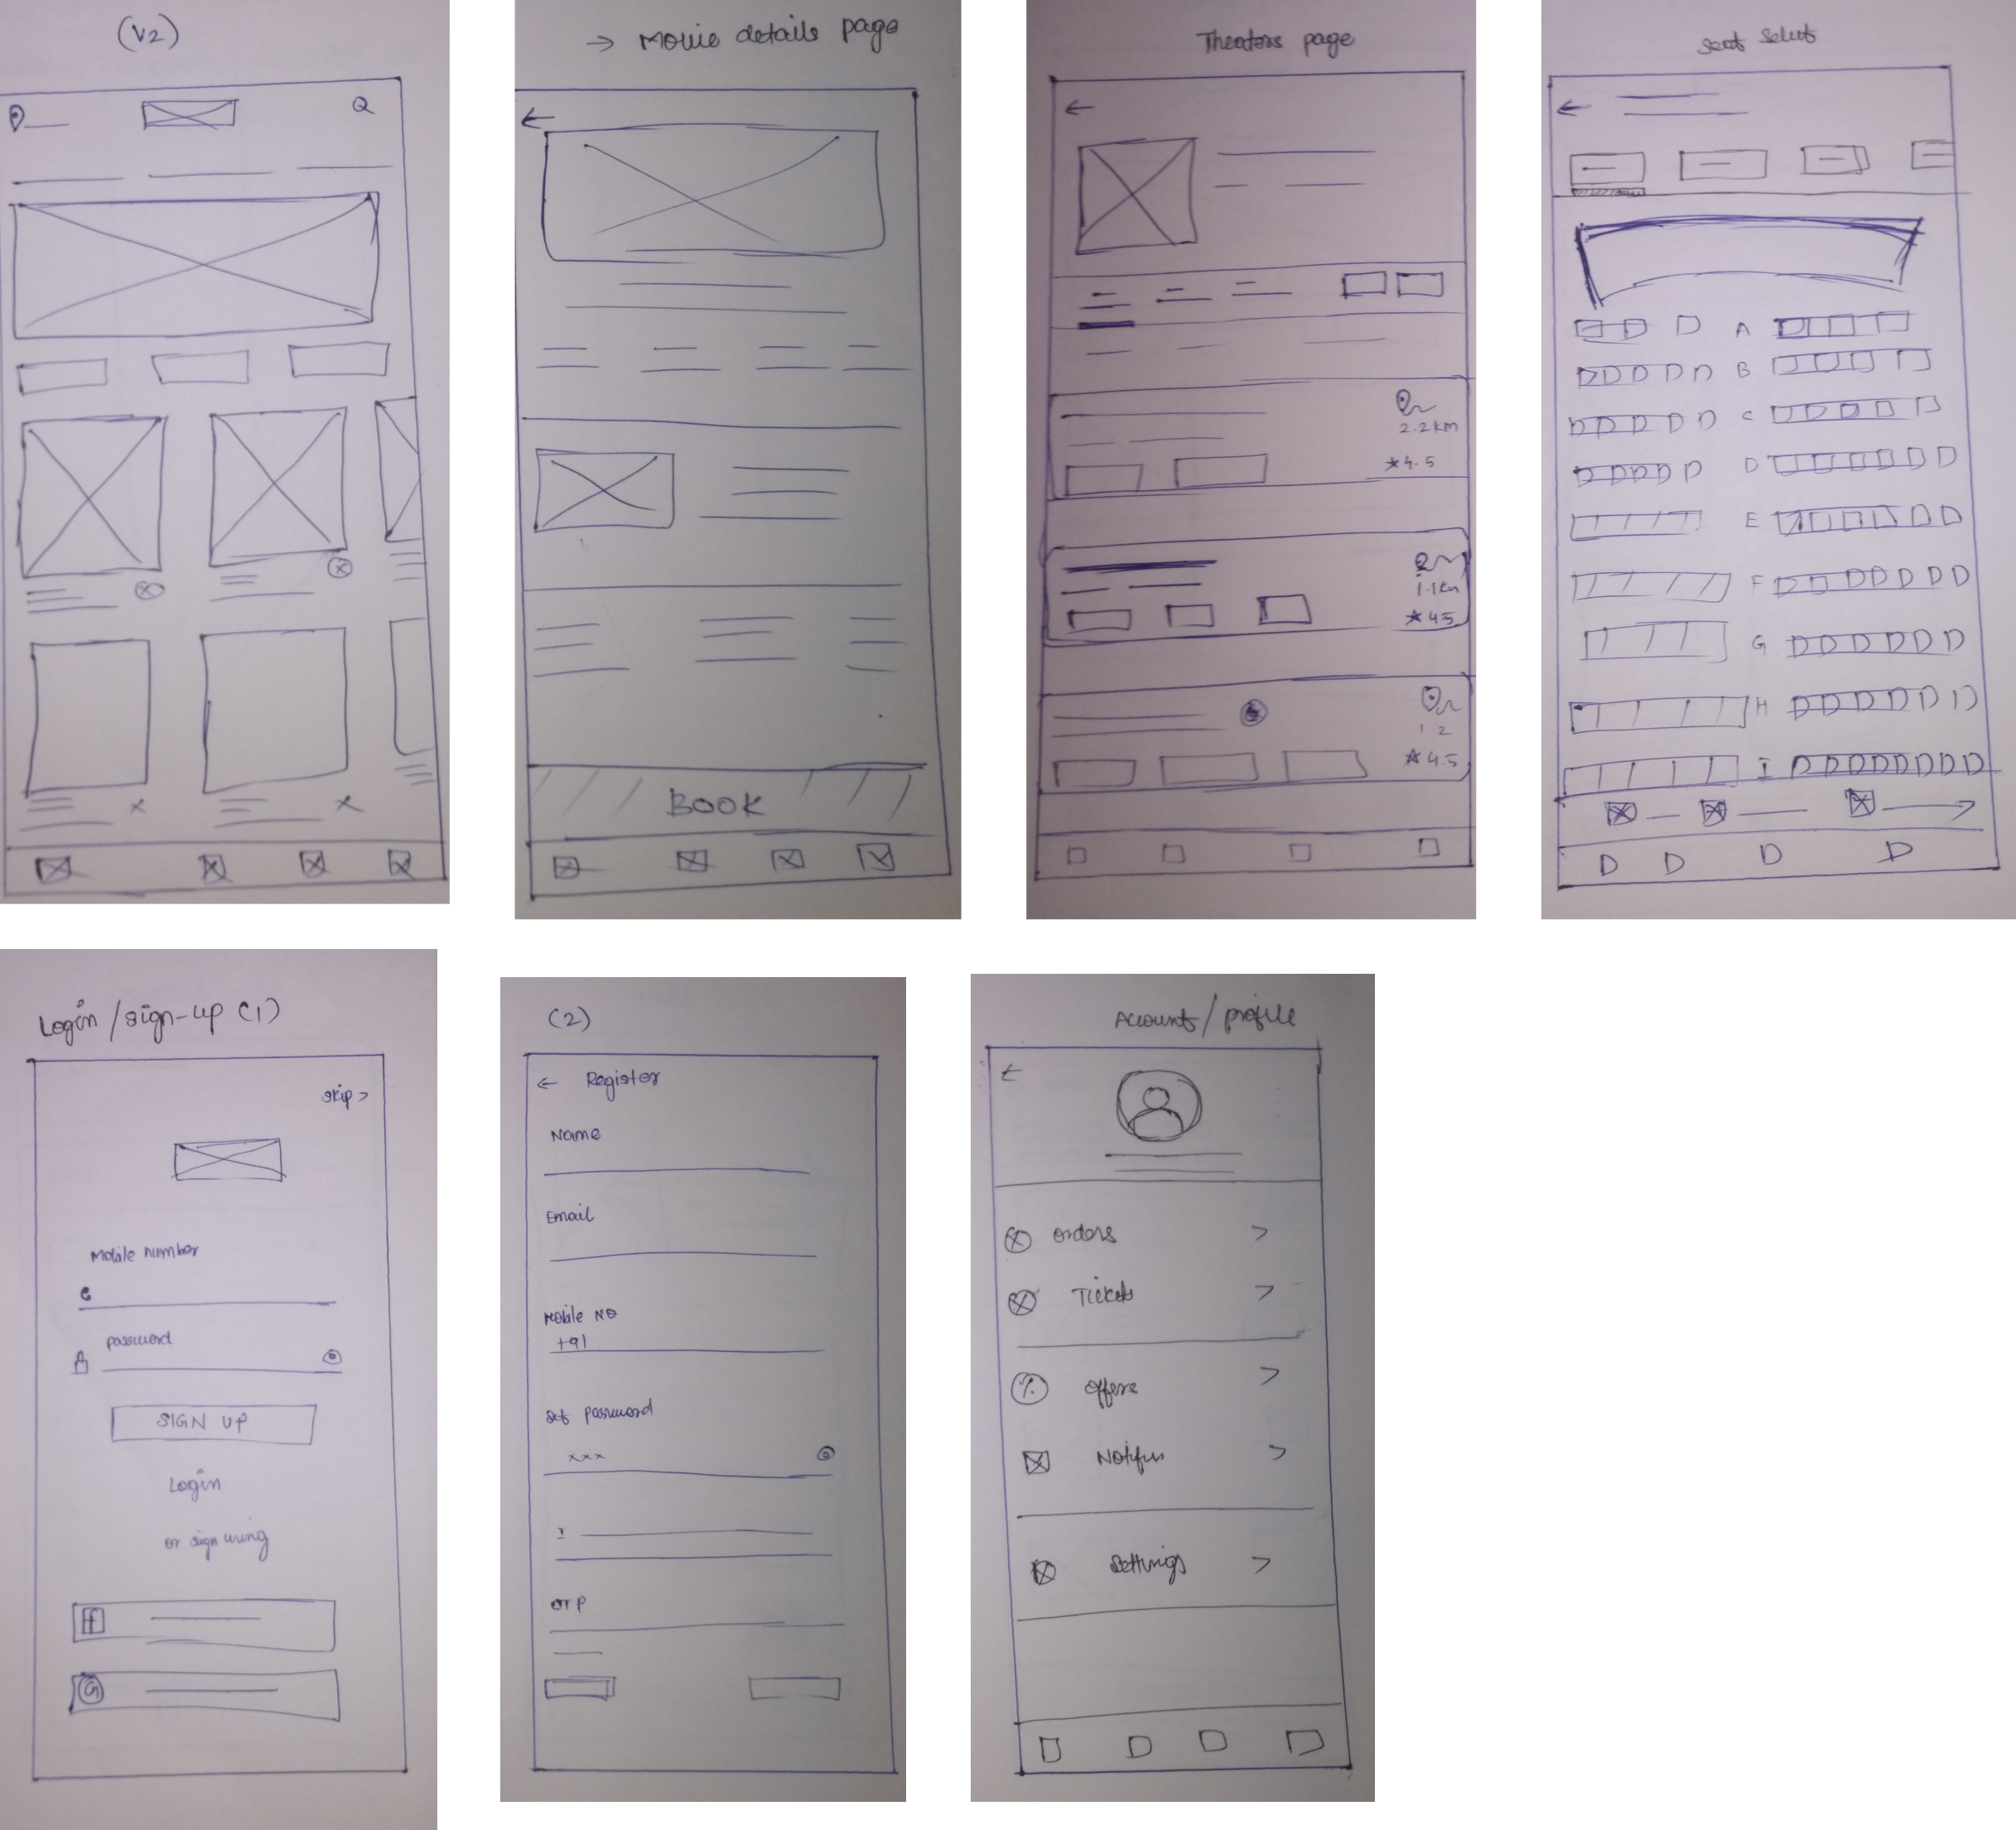 (V2)
→ Movie details page
BOOK
Theaters page
2.2km
★4.5
1.1km
★45
1.2
★4.5
Seat Select
A
B
C
D
E
F
G
H
I
Login /sign-up (1)
skip >
Mobile number
password
SIGN UP
Login
or sign using
f
G
(2)
← Register
Name
Email
Mobile NO
+91
set password
xxx
OTP
Account/profile
orders >
Tickets >
% offers >
>
Settings >